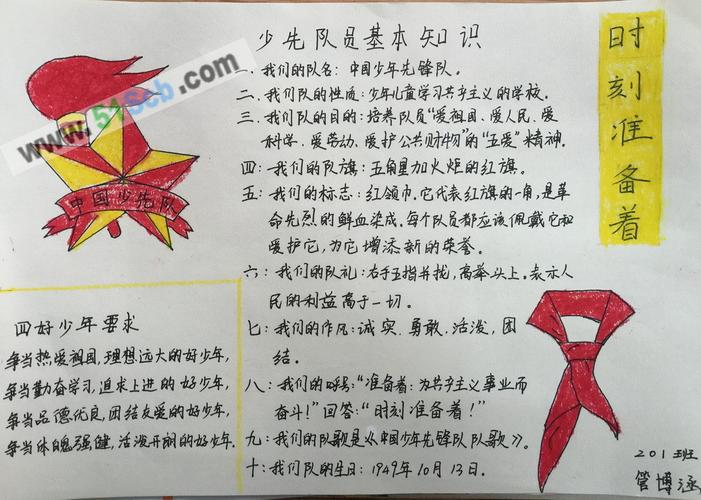 少先队员基本知识
一、我们的队名：中国少年先锋队。
二、我们队的性质：少年儿童学习共产主义的学校。
三、我们队的目的：培养队员“爱祖国、爱人民、爱
科学、爱劳动、爱护公共财物”的“五爱”精神。
四：我们的队旗：五角星加火炬的红旗。
五：我们的标志：红领巾。它代表红旗的一角，是革
命先烈的鲜血染成。每个队员都应该佩戴它和
爱护它，为它增添新的荣誉。
六：我们的队礼：右手五指并拢，高举头上。表示人
民的利益高于一切。
七：我们的作风：诚实、勇敢、活泼、团
结。
八：我们的呼号：“准备着：为共产主义事业而
奋斗！”回答：“时刻准备着！”
九：我们的队歌是《中国少年先锋队队歌》。
十：我们队的生日：1949年10月13日。
时刻准备着
中国少先队
www.51scb.com
四好少年要求
争当热爱祖国，理想远大的好少年，
争当勤奋学习，追求上进的好少年，
争当品德优良，团结友爱的好少年，
争当体魄强健，活泼开朗的好少年.
201班
管博涵